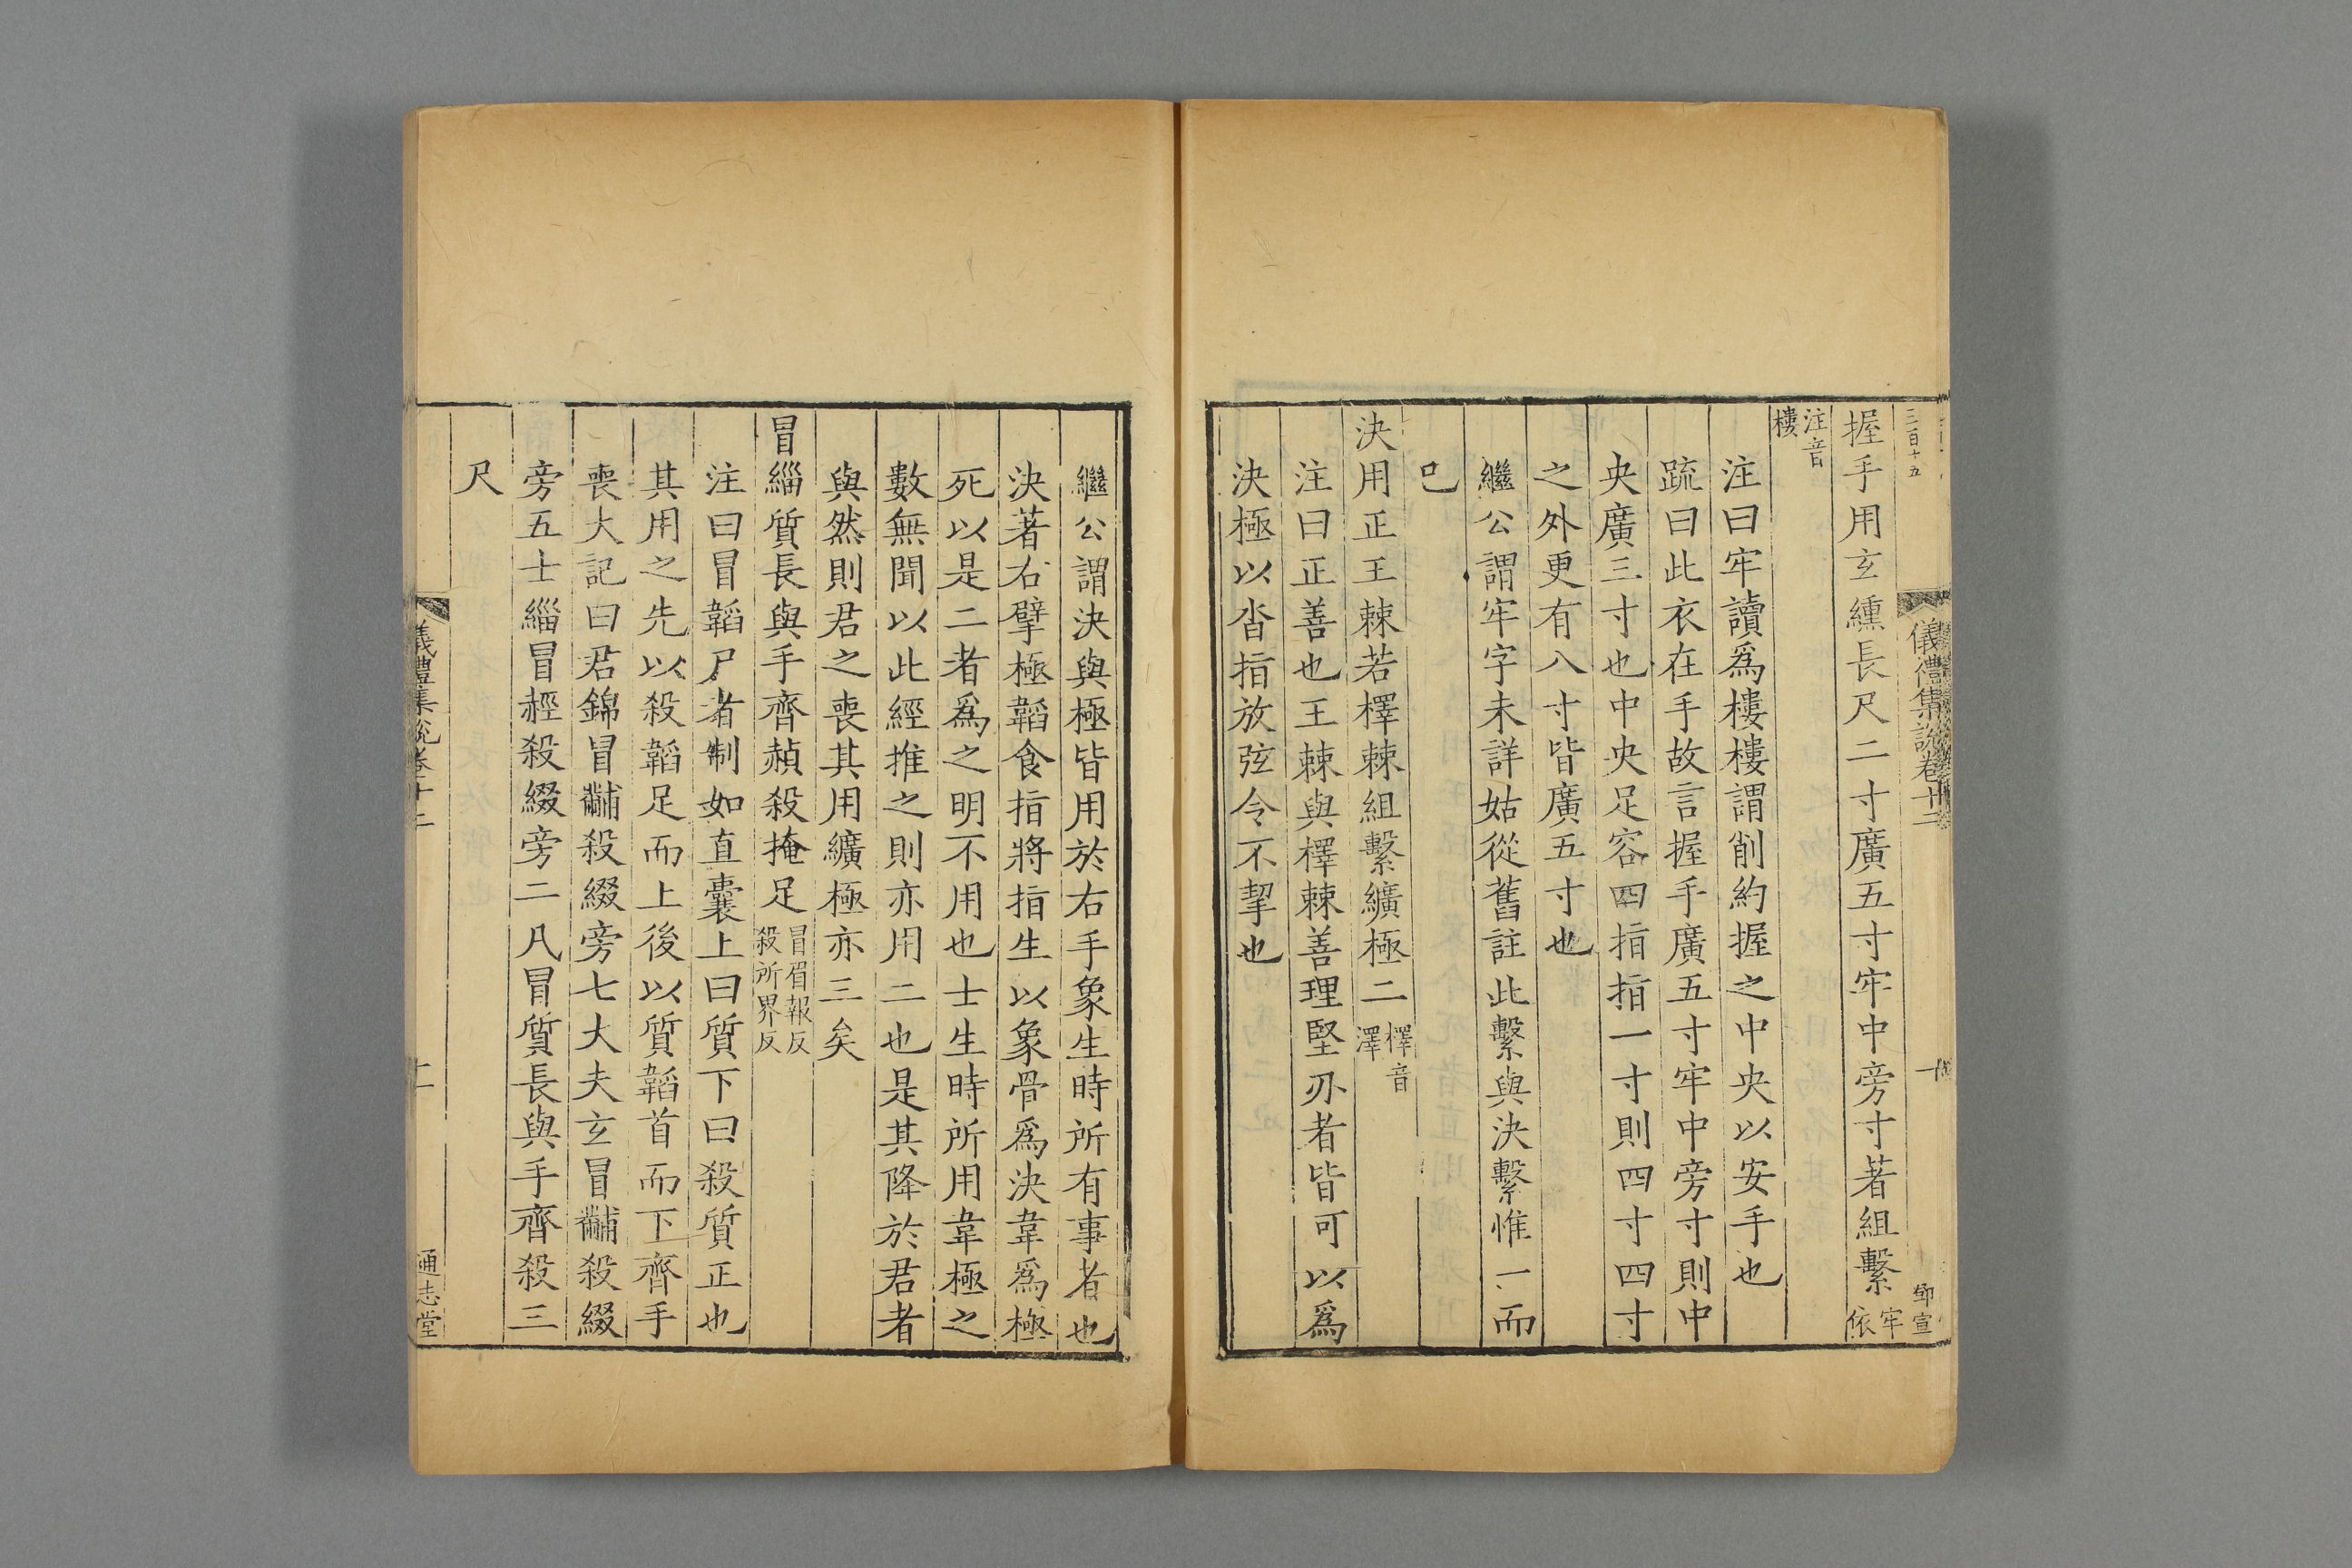 三百十五
儀禮集說卷十二
十
鄧宣
握手用玄纁長尺二寸廣五寸牢中旁寸著組繫牢依
注音樓
注曰牢讀爲樓樓謂削約握之中央以安手也
疏曰此衣在手故言握手廣五寸牢中旁寸則中
央廣三寸也中央足容四指指一寸則四寸四寸
之外更有八寸皆廣五寸也
繼公謂牢字未詳姑從舊註此繫與決繫惟一而
已
決用正王棘若檡棘組繫纊極二檡音澤
注曰正善也王棘與檡棘善理堅刃者皆可以爲
決極以沓指放弦令不挈也
繼公謂決與極皆用於右手象生時所有事者也
決著右擘極韜食指將指生以象骨爲決韋爲極
死以是二者爲之明不用也士生時所用韋極之
數無聞以此經推之則亦用二也是其降於君者
與然則君之喪其用纊極亦三矣
冒緇質長與手齊赬殺掩足冒眉報反殺所界反
注曰冒韜尸者制如直囊上曰質下曰殺質正也
其用之先以殺韜足而上後以質韜首而下齊手
喪大記曰君錦冒黼殺綴旁七大夫玄冒黼殺綴
旁五士緇冒赬殺綴旁二凡冒質長與手齊殺三
尺
儀禮集說卷十二
十一
通志堂